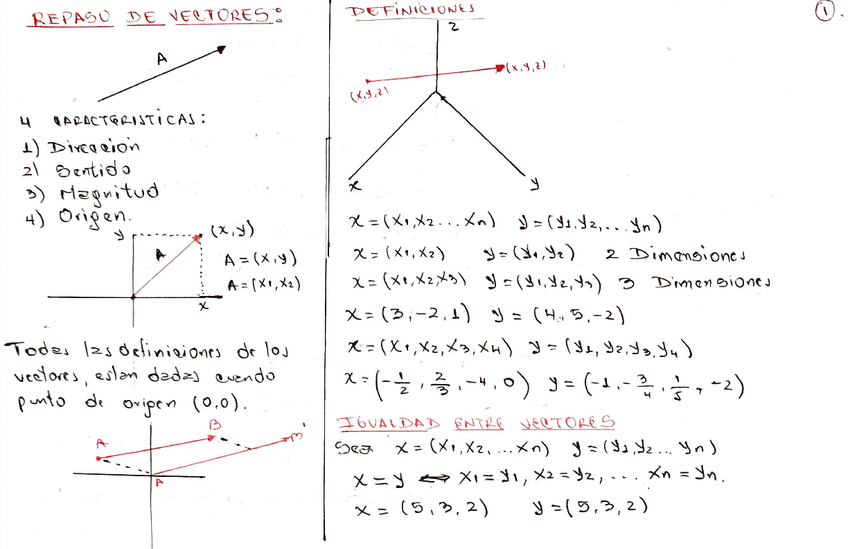 REPASO DE VECTORES:
A
4 CARACTERISTICAS:
1) Dirección
2) Sentido
3) Magnitud
4) Origen.
y
(x,y)
A
A = (x,y)
A = (x1, x2)
x
Todas las definiciones de los
vectores, estan dadas cuando
punto de origen (0,0).
A
B
B'
A
DEFINICIONES
1.
z
(x,y,z)
(x,y,z)
x
y
x = (x1, x2 ... xn) y = (y1, y2, ... yn)
x = (x1, x2) y = (y1, y2) 2 Dimensiones
x = (x1, x2 x3) y = (y1, y2, y3) 3 Dimensiones
x = (3, -2, 1) y = (4, 5, -2)
x = (x1, x2, x3, x4) y = (y1, y2, y3, y4)
x = (-1/2, 2/3, -4, 0) y = (-1, -3/4, 1/5, -2)
IGUALDAD ENTRE VECTORES
Sea x = (x1, x2, ... xn) y = (y1, y2 ... yn)
x = y ⟺ x1 = y1, x2 = y2, ... xn = yn.
x = (5, 3, 2) y = (5, 3, 2)